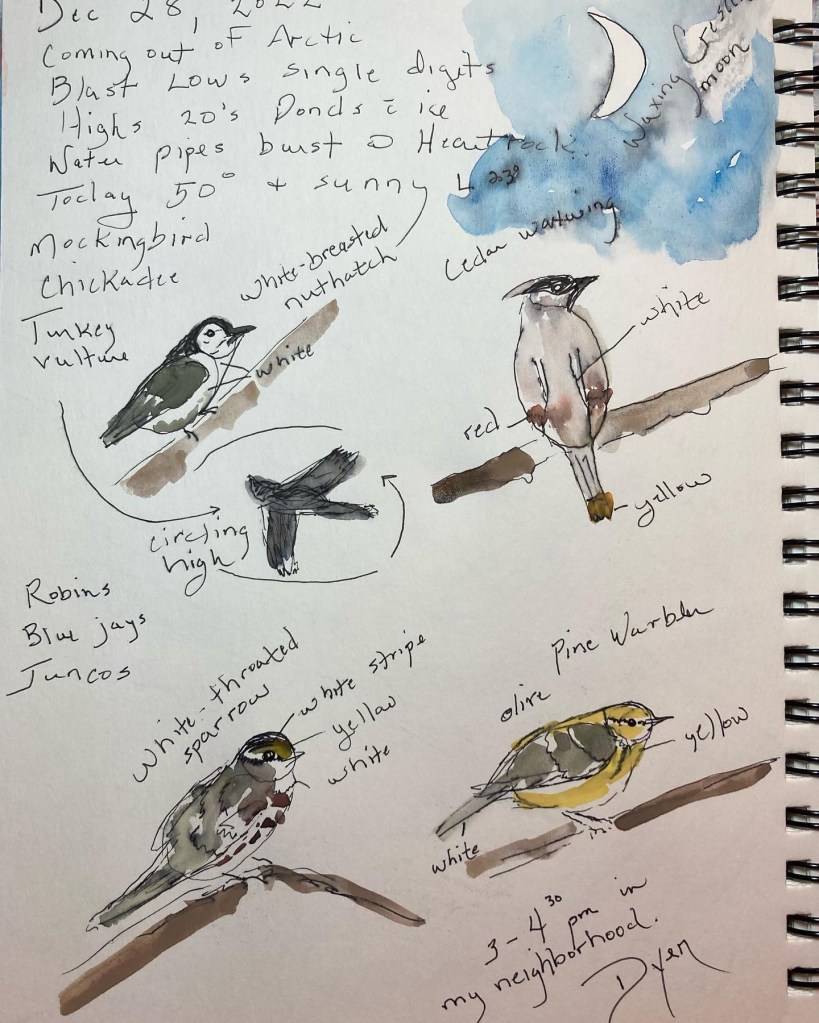 Dec 28, 2022
Coming out of Arctic
Blast Lows single digits
Highs 20's Ponds c̄ ice
Water pipes burst @ Heartrock.
Today 50° + sunny
Waxing Crescent
moon
Mockingbird
Chickadee
Turkey
vulture
White-breasted
nuthatch
white
Cedar waxwing
white
red
yellow
circling
high
Robins
Blue jays
Juncos
White-throated
sparrow
white stripe
yellow
white
Pine Warbler
olive
yellow
white
3 - 4³⁰ pm in
my neighborhood.
Dyer